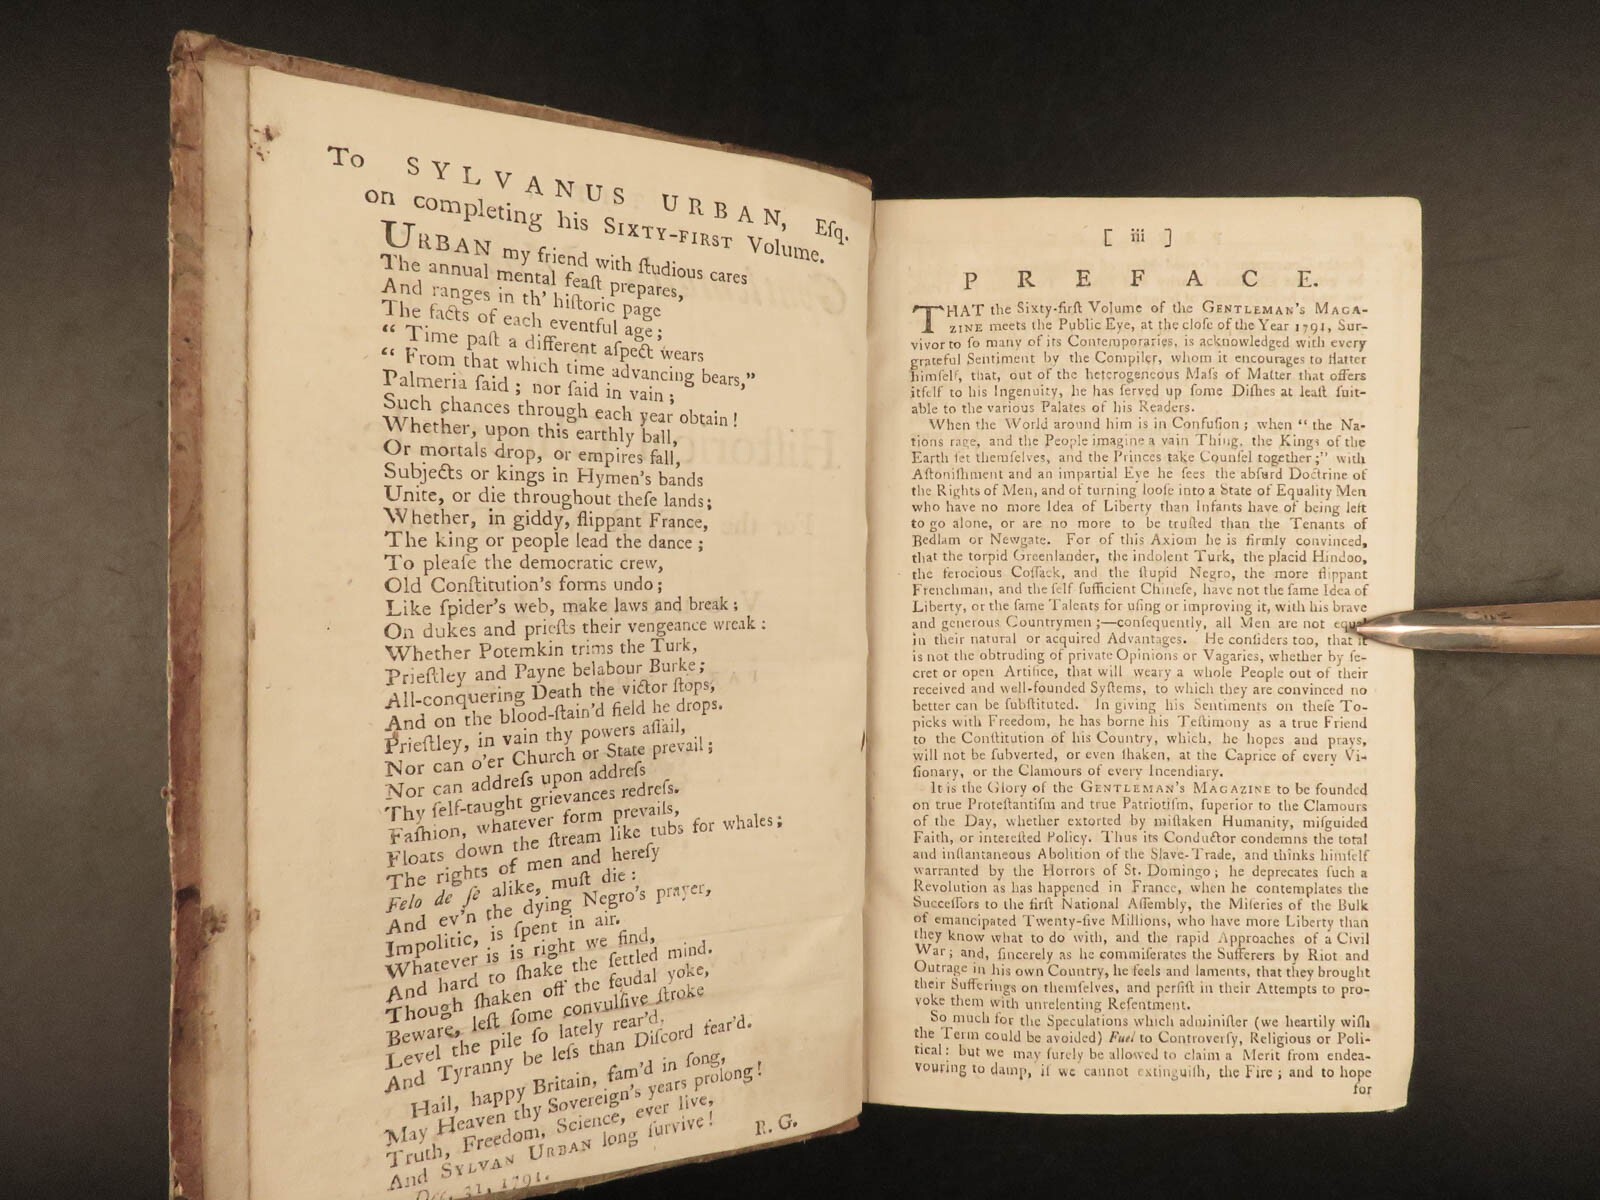 To SYLVANUS URBAN, Eſq.
on completing his SIXTY-FIRST Volume.
URBAN my friend with ſtudious cares
The annual mental feaſt prepares,
And ranges in th' hiſtoric page
The facts of each eventful age;
“ Time paſt a different aſpect wears
“ From that which time advancing bears,”
Palmeria ſaid; nor ſaid in vain;
Such chances through each year obtain!
Whether, upon this earthly ball,
Or mortals drop, or empires fall,
Subjects or kings in Hymen's bands
Unite, or die throughout theſe lands;
Whether, in giddy, flippant France,
The king or people lead the dance;
To pleaſe the democratic crew,
Old Conſtitution's forms undo;
Like ſpider's web, make laws and break;
On dukes and prieſts their vengeance wreak:
Whether Potemkin trims the Turk,
Prieſtley and Payne belabour Burke;
All-conquering Death the victor ſtops,
And on the blood-ſtain'd field he drops.
Prieſtley, in vain thy powers aſſail,
Nor can o'er Church or State prevail;
Nor can addreſs upon addreſs
Thy ſelf-taught grievances redreſs.
Faſhion, whatever form prevails,
Floats down the ſtream like tubs for whales;
The rights of men and hereſy
Felo de ſe alike, muſt die:
And ev'n the dying Negro's prayer,
Impolitic, is ſpent in air.
Whatever is is right we find,
And hard to ſhake the ſettled mind.
Though ſhaken off the feudal yoke,
Beware, leſt ſome convulſive ſtroke
Level the pile ſo lately rear'd,
And Tyranny be leſs than Diſcord fear'd.
Hail, happy Britain, fam'd in ſong,
May Heaven thy Sovereign's years prolong!
Truth, Freedom, Science, ever live,
And SYLVAN URBAN long ſurvive!
Dec. 31, 1791. R. G.
[ iii ]
PREFACE.
THAT the Sixty-firſt Volume of the GENTLEMAN'S MAGA-
ZINE meets the Public Eye, at the cloſe of the Year 1791, Sur-
vivor to ſo many of its Contemporaries, is acknowledged with every
grateful Sentiment by the Compiler, whom it encourages to flatter
himſelf, that, out of the heterogeneous Maſs of Matter that offers
itſelf to his Ingenuity, he has ſerved up ſome Diſhes at leaſt ſuit-
able to the various Palates of his Readers.
When the World around him is in Confuſion; when “ the Na-
tions rage, and the People imagine a vain Thing, the Kings of the
Earth ſet themſelves, and the Princes take Counſel together;” with
Aſtoniſhment and an impartial Eye he ſees the abſurd Doctrine of
the Rights of Men, and of turning looſe into a State of Equality Men
who have no more Idea of Liberty than Infants have of being left
to go alone, or are no more to be truſted than the Tenants of
Bedlam or Newgate. For of this Axiom he is firmly convinced,
that the torpid Greenlander, the indolent Turk, the placid Hindoo,
the ferocious Coſſack, and the ſtupid Negro, the more flippant
Frenchman, and the ſelf ſufficient Chineſe, have not the ſame Idea of
Liberty, or the ſame Talents for uſing or improving it, with his brave
and generous Countrymen;—conſequently, all Men are not equal
in their natural or acquired Advantages. He conſiders too, that it
is not the obtruding of private Opinions or Vagaries, whether by ſe-
cret or open Artifice, that will weary a whole People out of their
received and well-founded Syſtems, to which they are convinced no
better can be ſubſtituted. In giving his Sentiments on theſe To-
picks with Freedom, he has borne his Teſtimony as a true Friend
to the Conſtitution of his Country, which, he hopes and prays,
will not be ſubverted, or even ſhaken, at the Caprice of every Vi-
ſionary, or the Clamours of every Incendiary.
It is the Glory of the GENTLEMAN'S MAGAZINE to be founded
on true Proteſtantiſm and true Patriotiſm, ſuperior to the Clamours
of the Day, whether extorted by miſtaken Humanity, miſguided
Faith, or intereſted Policy. Thus its Conductor condemns the total
and inſtantaneous Abolition of the Slave-Trade, and thinks himſelf
warranted by the Horrors of St. Domingo; he deprecates ſuch a
Revolution as has happened in France, when he contemplates the
Succeſſors to the firſt National Aſſembly, the Miſeries of the Bulk
of emancipated Twenty-five Millions, who have more Liberty than
they know what to do with, and the rapid Approaches of a Civil
War; and, ſincerely as he commiſerates the Sufferers by Riot and
Outrage in his own Country, he feels and laments, that they brought
their Sufferings on themſelves, and perſiſt in their Attempts to pro-
voke them with unrelenting Reſentment.
So much for the Speculations which adminiſter (we heartily wiſh
the Term could be avoided) Fuel to Controverſy, Religious or Poli-
tical: but we may ſurely be allowed to claim a Merit from endea-
vouring to damp, if we cannot extinguiſh, the Fire; and to hope
for